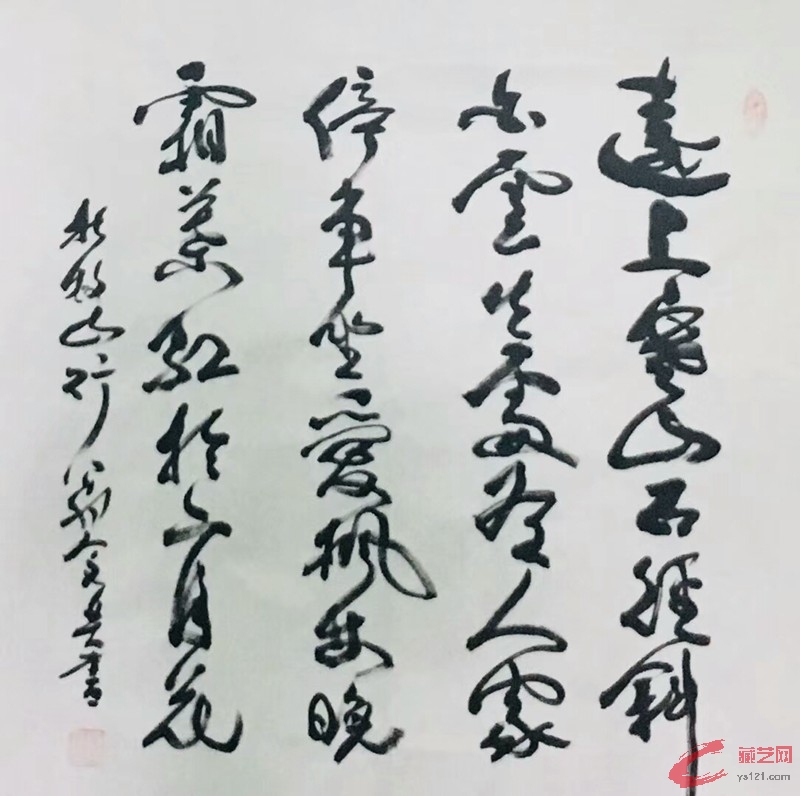 遠上寒山石徑斜
白雲生處有人家
停車坐愛楓林晚
霜葉紅於二月花
杜牧山行 書
藏艺网
ys121.com